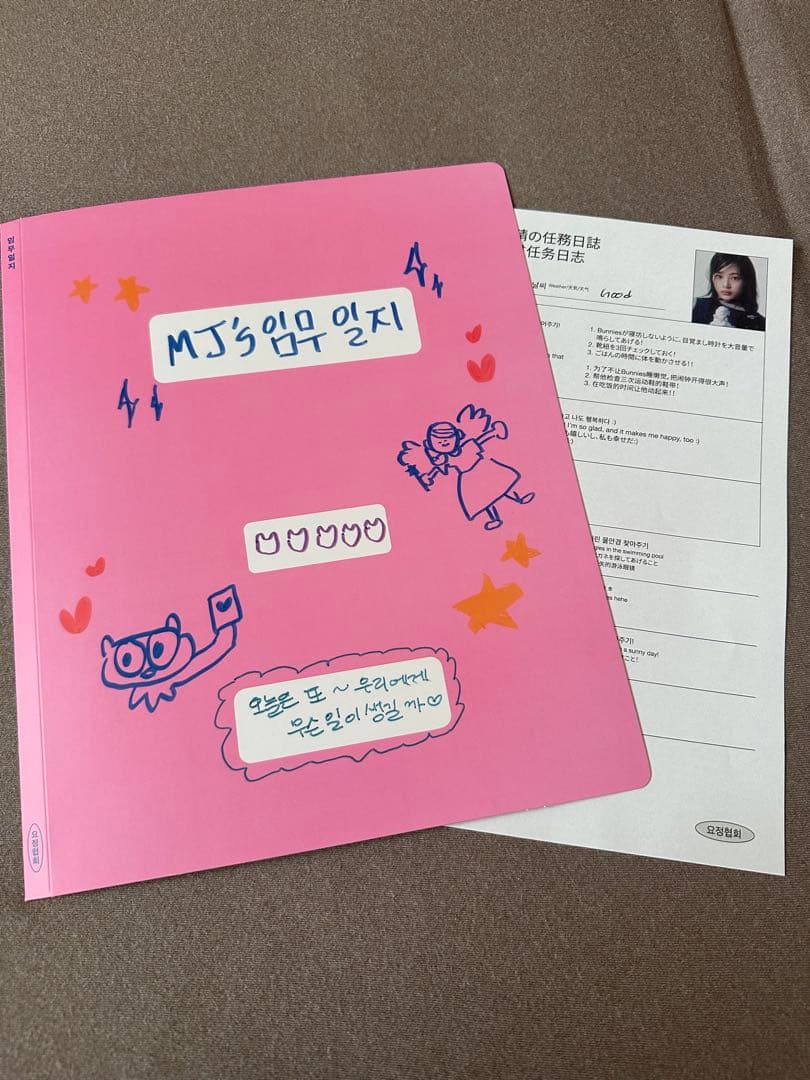 임무일지
MJ's 임무 일지
오늘은 또 ~ 우리에게
무슨 일이 생길 까♡
요정협회
の任務日誌
任务日志
날씨 Weather/天気/天气 Good
아주기!
that
1. Bunniesが寝坊しないように、目覚まし時計を大音量で
鳴らしてあげる!
2. 靴紐を3回チェックしておく!
3. ごはんの時間に体を動かさせる!!
1. 为了不让Bunnies睡懒觉，把闹钟开得很大声!
2. 帮他检查三次运动鞋的鞋带!
3. 在吃饭的时间让他动起来!!
고 나도 행복하다 :)
I'm so glad, and it makes me happy, too :)
も嬉しいし、私も幸せだ:)
:)
린 물안경 찾아주기
gles in the swimming pool
ガネを探してあげること
失的游泳眼镜
es hehe
주기!
a sunny day!
こと!
요정협회